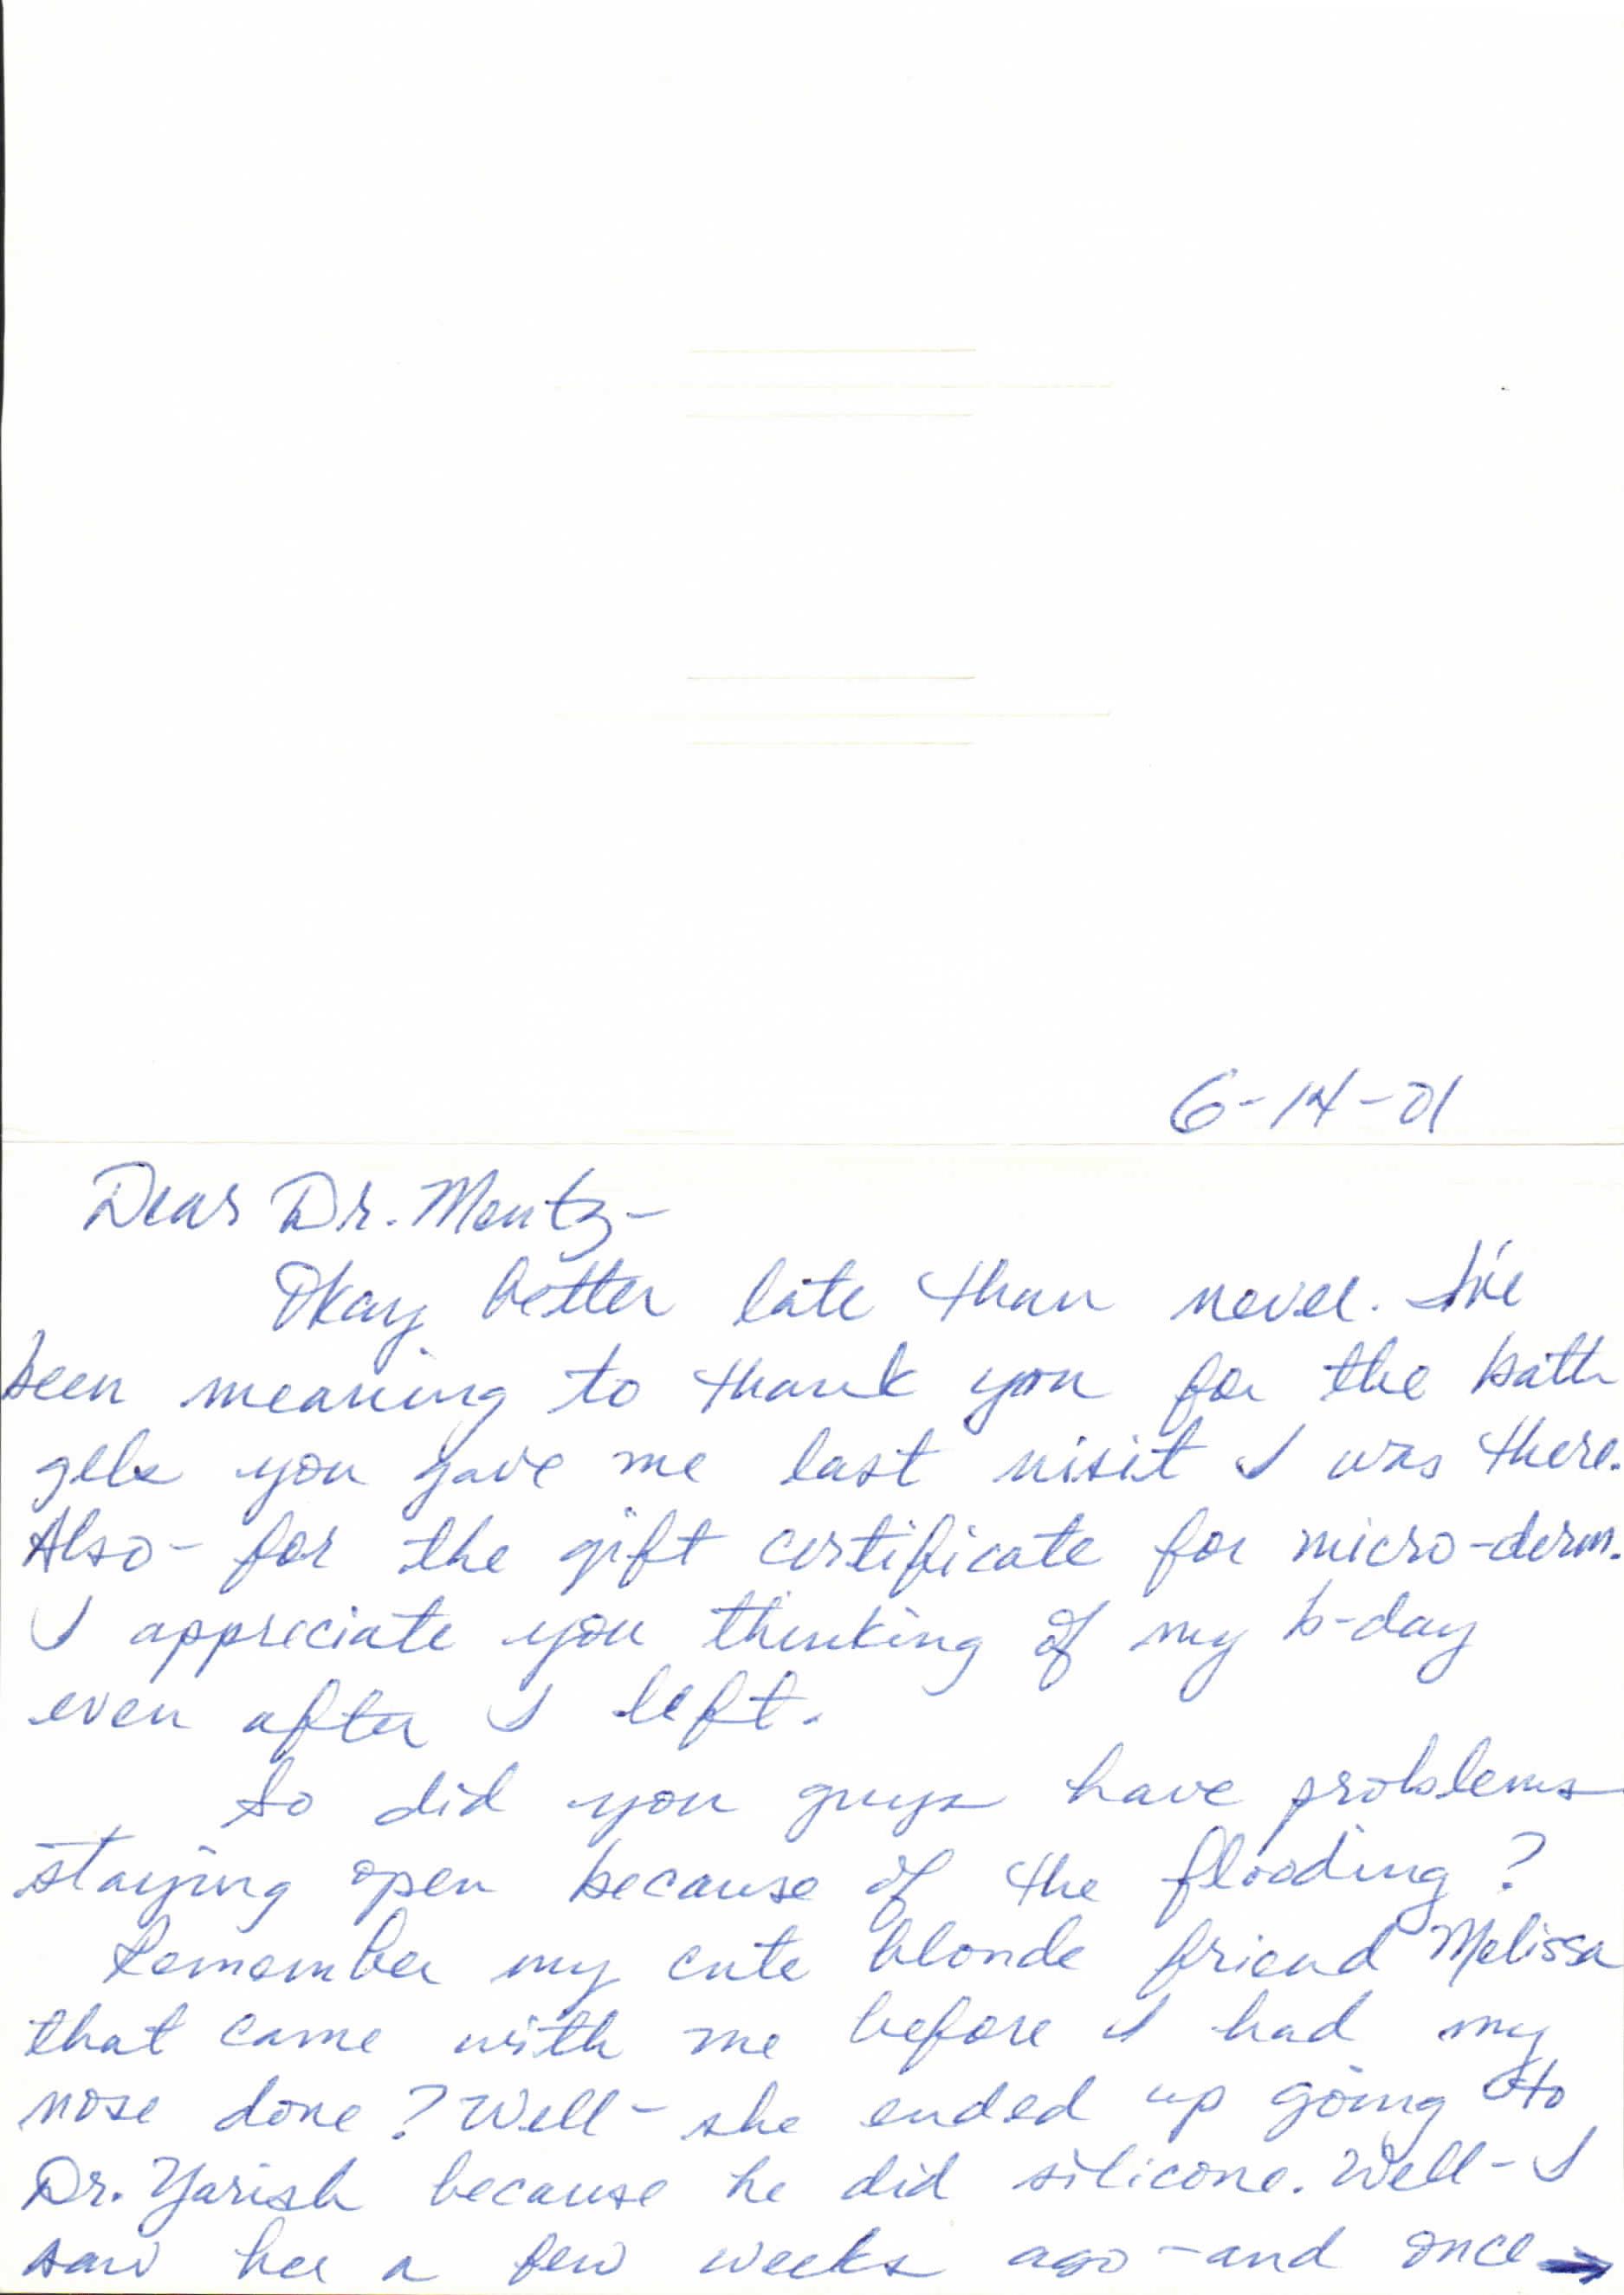 6-14-01
Dear Dr. Mentz-
Okay better late than never. I've
been meaning to thank you for the bath
gels you gave me last visit I was there.
Also- for the gift certificate for micro-derm.
I appreciate you thinking of my b-day
even after I left.
So did you guys have problems
staying open because of the flooding?
Remember my cute blonde friend Melissa
that came with me before I had my
nose done? Well- she ended up going to
Dr. Yarish because he did silicone. Well- I
saw her a few weeks ago -and once →